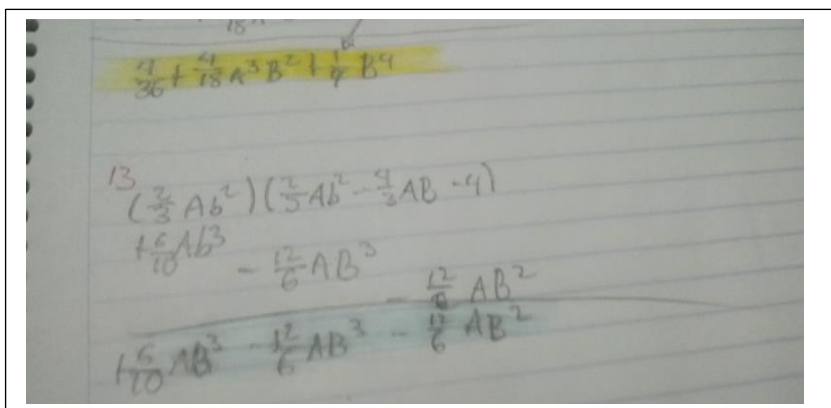 4/36 + 4/18 A³B² + 1/9 B⁴
13
(2/3 Ab²)(2/5 Ab² - 4/3 AB - 4)
+6/10 Ab³
- 12/6 AB³
- 12/6 AB²
+6/10 AB³ - 12/6 AB³ - 12/6 AB²